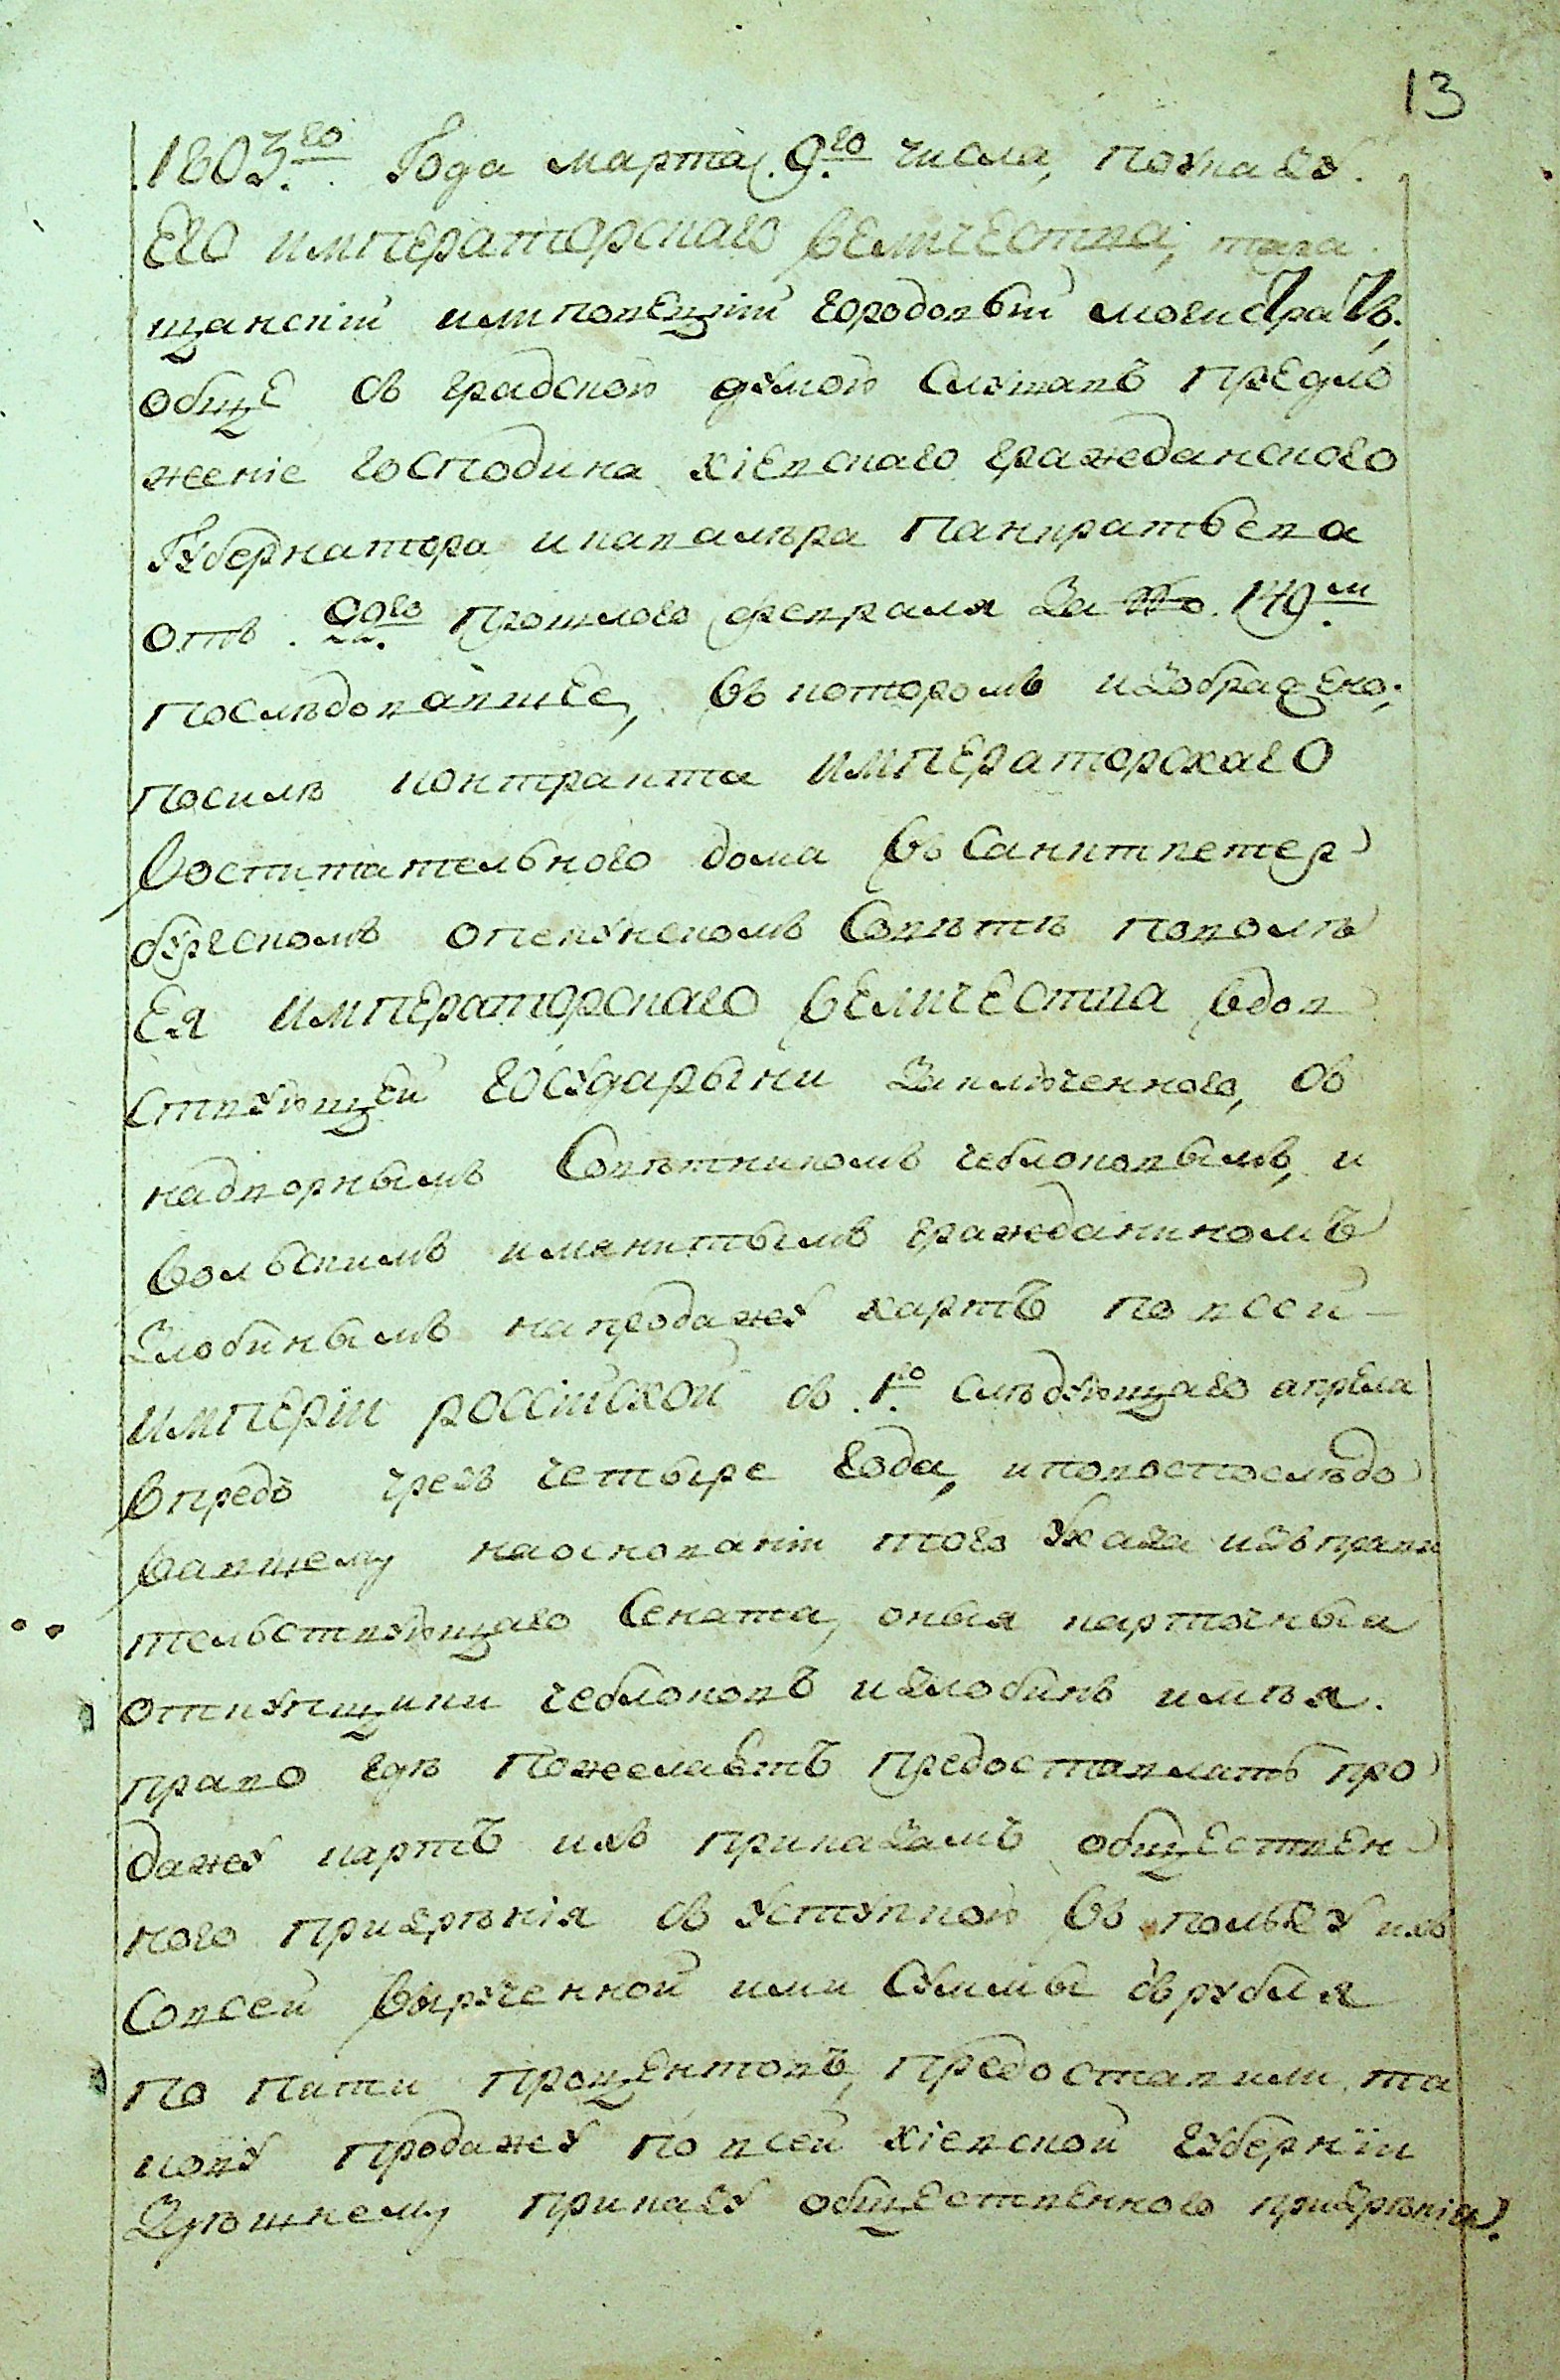 13
1803.го Года марта 9.го числа, поуказу.
Его императорскаго величества, тара
щанскій илиповецкій городовый могистратъ.
обще съ градской думой слушавъ предло
женіе господина кіевскаго гражданского
губернатора икавалѣра панкратьева
отъ 22.го прошлого февраля за №о. 149.м
послѣдовавшее, въ которомъ изображено;
посилѣ контракта императорскаго
воспитательного дома въ Санктпетер
бургскомъ опекунскомъ Совѣтѣ поволѣ
Ея императорскаго величества вдов
ствующей государыни заключенного, съ
надворнымъ Совѣтникомъ чеблоковымъ, и
вольскимъ имянитымъ гражданиномъ
Злобинымъ напродажу картъ по всей
имперіи россійской съ 1.го слѣдующаго апреля
впредь чрезъ четыре года, ипопоспослѣдо
вавшему наоснованіи того указа изъ прави
тельствующаго Сената, оныя карточныя
откупщики чеблоковъ излобинъ имѣя.
право гдѣ пожелаетъ предоставлять про
дажу картъ ихъ приказамъ обществен
ного призрѣнія съ уступкой въ пользу ихъ
Совсей вырученной ими Суммы съ рубля
по пяти процентовъ, предоставили та
кову продажу по всей кіевской губерніи
здѣшнему приказу общественного призрѣнія.